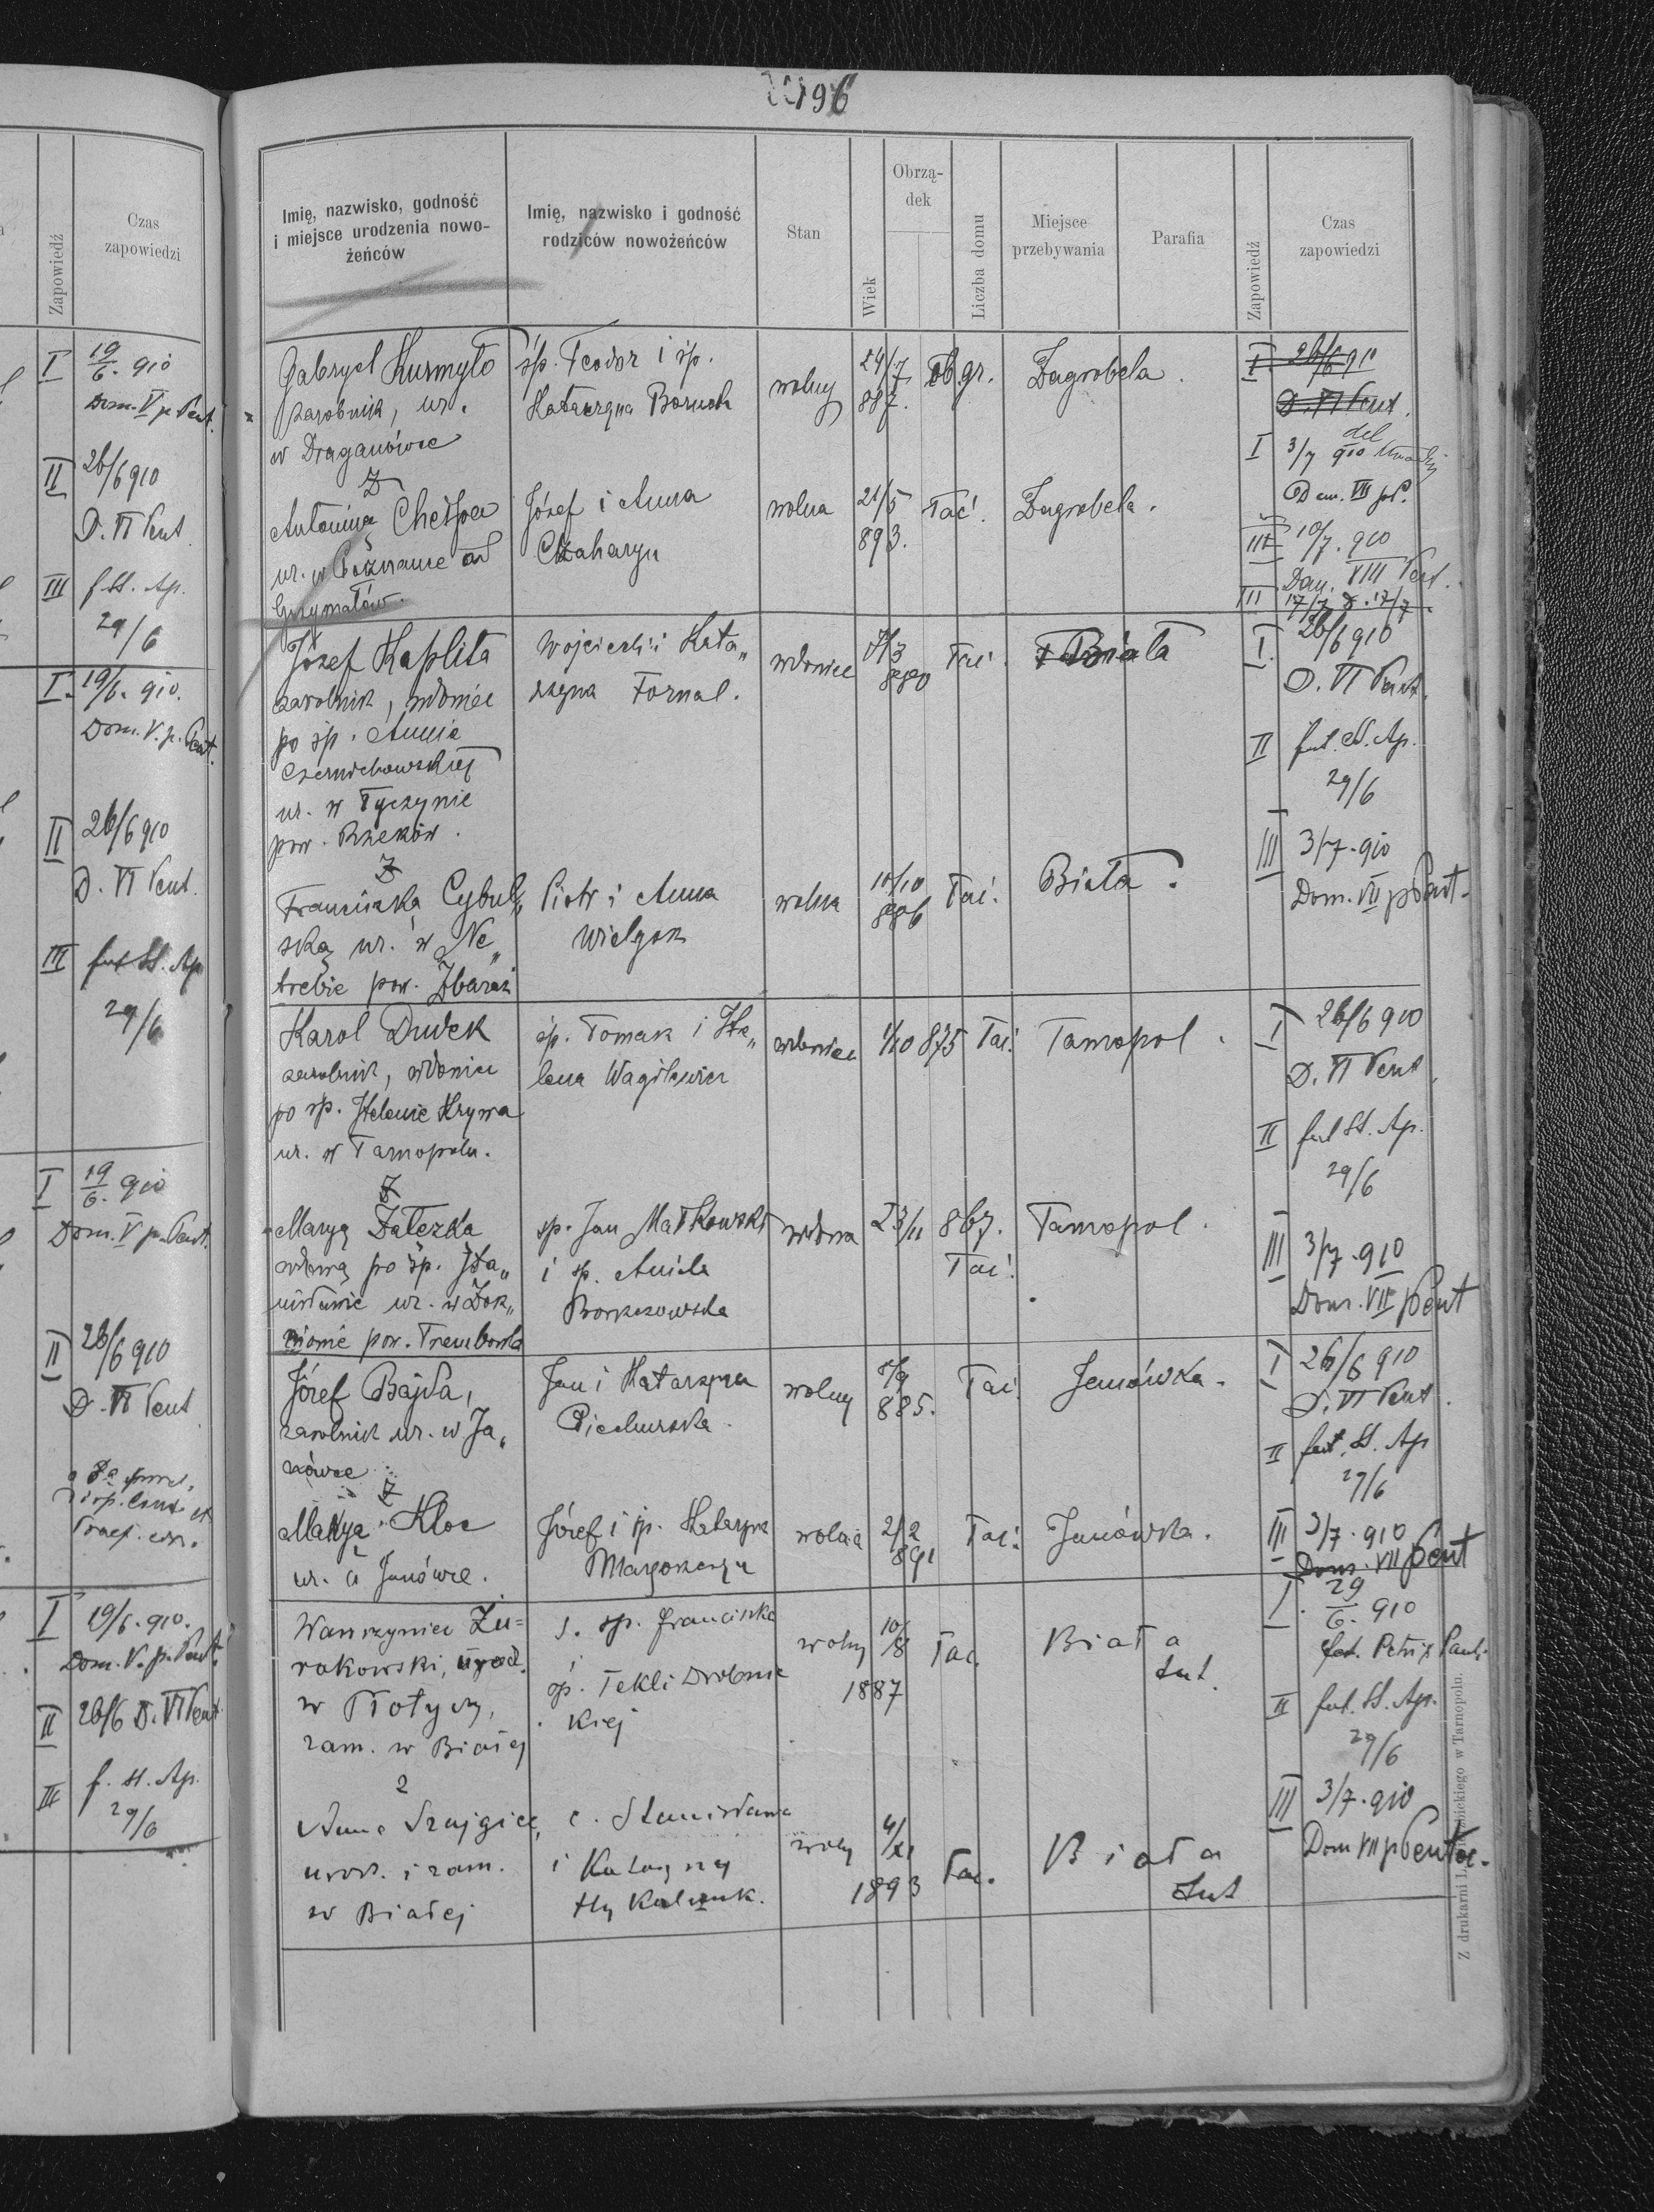 196
Zapowiedź
Czas
zapowiedzi
I 19/6. 910
Dom. V p. Pent.
II 26/6 910
D. VI Pent.
III f. SS. Ap.
29/6
I. 19/6. 910.
Dom. V. p. Pent.
II 26/6 910
D. VI Pent.
III fest SS. Ap
29/6
I 19/6. 910
Dom. V p. Pent.
II 26/6 910
D. VI Pent
I 19/6. 910.
Dom. V. p. Pent.
II 26/6 D. VI Pent
III f. SS. Ap.
29/6
Imię, nazwisko, godność
i miejsce urodzenia nowo-
żeńców
Imię, nazwisko i godność
rodziców nowożeńców
Stan
Wiek
Obrzą-
dek
Liczba domu
Miejsce
przebywania
Parafia
Zapowiedź
Czas
zapowiedzi
Gabryel Kurmyło
zarobnik, ur.
w Draganówce
śp. Teodor i śp.
Katarzyna Boruch
wolny
24/7
887.
ob gr.
Zagrobela.
I 26/6 910
D. VI Pent.
I 3/7 910
Dom. VII
Z
Antonina
ur. w
Grzymałów.
Józef i Anna
wolna
21/5
893.
łać.
Zagrobela.
III 10/7. 910
VIII Pent.
III 17/7 17/7.
Józef Kaplita
zarobnik, wdowiec
po śp. Annie
Czernichowskiej
ur. w Tyczynie
pow. Rzeszów.
Wojciech i Kata„
rzyna Fornal.
wdowiec
/3
880
łać.
Biała
I. 26/6 910
D. VI Pent.
II fest. SS. Ap.
29/6
III 3/7. 910
Dom. VII p Pent.
Z
Franciszka Cybul„
ska ur. w Ne„
trebie pow. Zbaraż
Piotr i Anna
Wielgosz
wolna
10/10
886
łać.
Biała.
Karol Dudek
zarobnik, wdowiec
po śp. Helenie Krywa
ur. w Tarnopolu.
śp. Tomasz i He„
lena Wagilewicz
wdowiec
1/10 875
łać.
Tarnopol.
I 26/6 910
D. VI Pent.
II fest SS. Ap.
29/6
III 3/7. 910
Dom. VII Pent
Z
Marya Załezka
wdowa po śp. Sta„
nisławie ur. w
pow. Trembowla
śp. Jan Małkowski
i śp. Aniela
wdowa
23/11 867.
łać.
Tarnopol.
Józef Bajda,
zarobnik ur. w Ja„
nówce
Jan i Katarzyna
Piechurska.
wolny
8/9
885.
łać.
Janówka.
I 26/6 910
D. VI Pent.
II fest. SS. Ap
29/6
III 3/7. 910
Dom. VII Pent
Z
Marya Kloc
ur. w Janówce.
Józef i śp. Katarzyna
wolna
2/2
891
łać.
Janówka.
Wawrzyniec Żu=
rakowski, urodz.
w Płotyczy,
zam. w Białej
s. śp. Franciszka
i
śp. Tekli Drobnic
kiej
wolny
10/8
1887
łac.
Biała
tut.
I. 29/6. 910
fest. Petri & Pauli
II fest. SS. Ap.
29/6
III 3/7. 910
Dom VII p Pente.
z
Anna Szajgiec,
urodz. i zam.
w Białej
c. Stanisława
i Katarzyny
wolny
4/XI
1893
łac.
Biała
tut
Z drukarni L. Wierzbickiego w Tarnopolu.